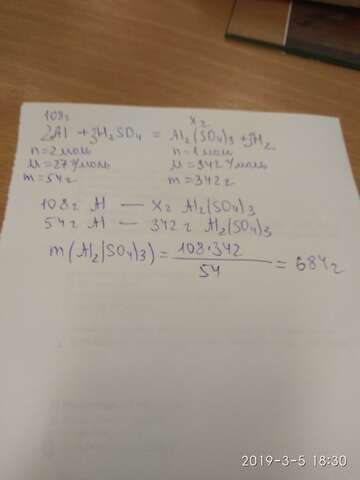 108г xг
2Al + 3H₂SO₄ = Al₂(SO₄)₃ + 3H₂
n = 2 моль n = 1 моль
M = 27г/моль M = 342г/моль
m = 54г m = 342г
108г Al — Xг Al₂(SO₄)₃
54г Al — 342г Al₂(SO₄)₃
m(Al₂(SO₄)₃) = 108·342 / 54 = 684г
2019-3-5 18:30